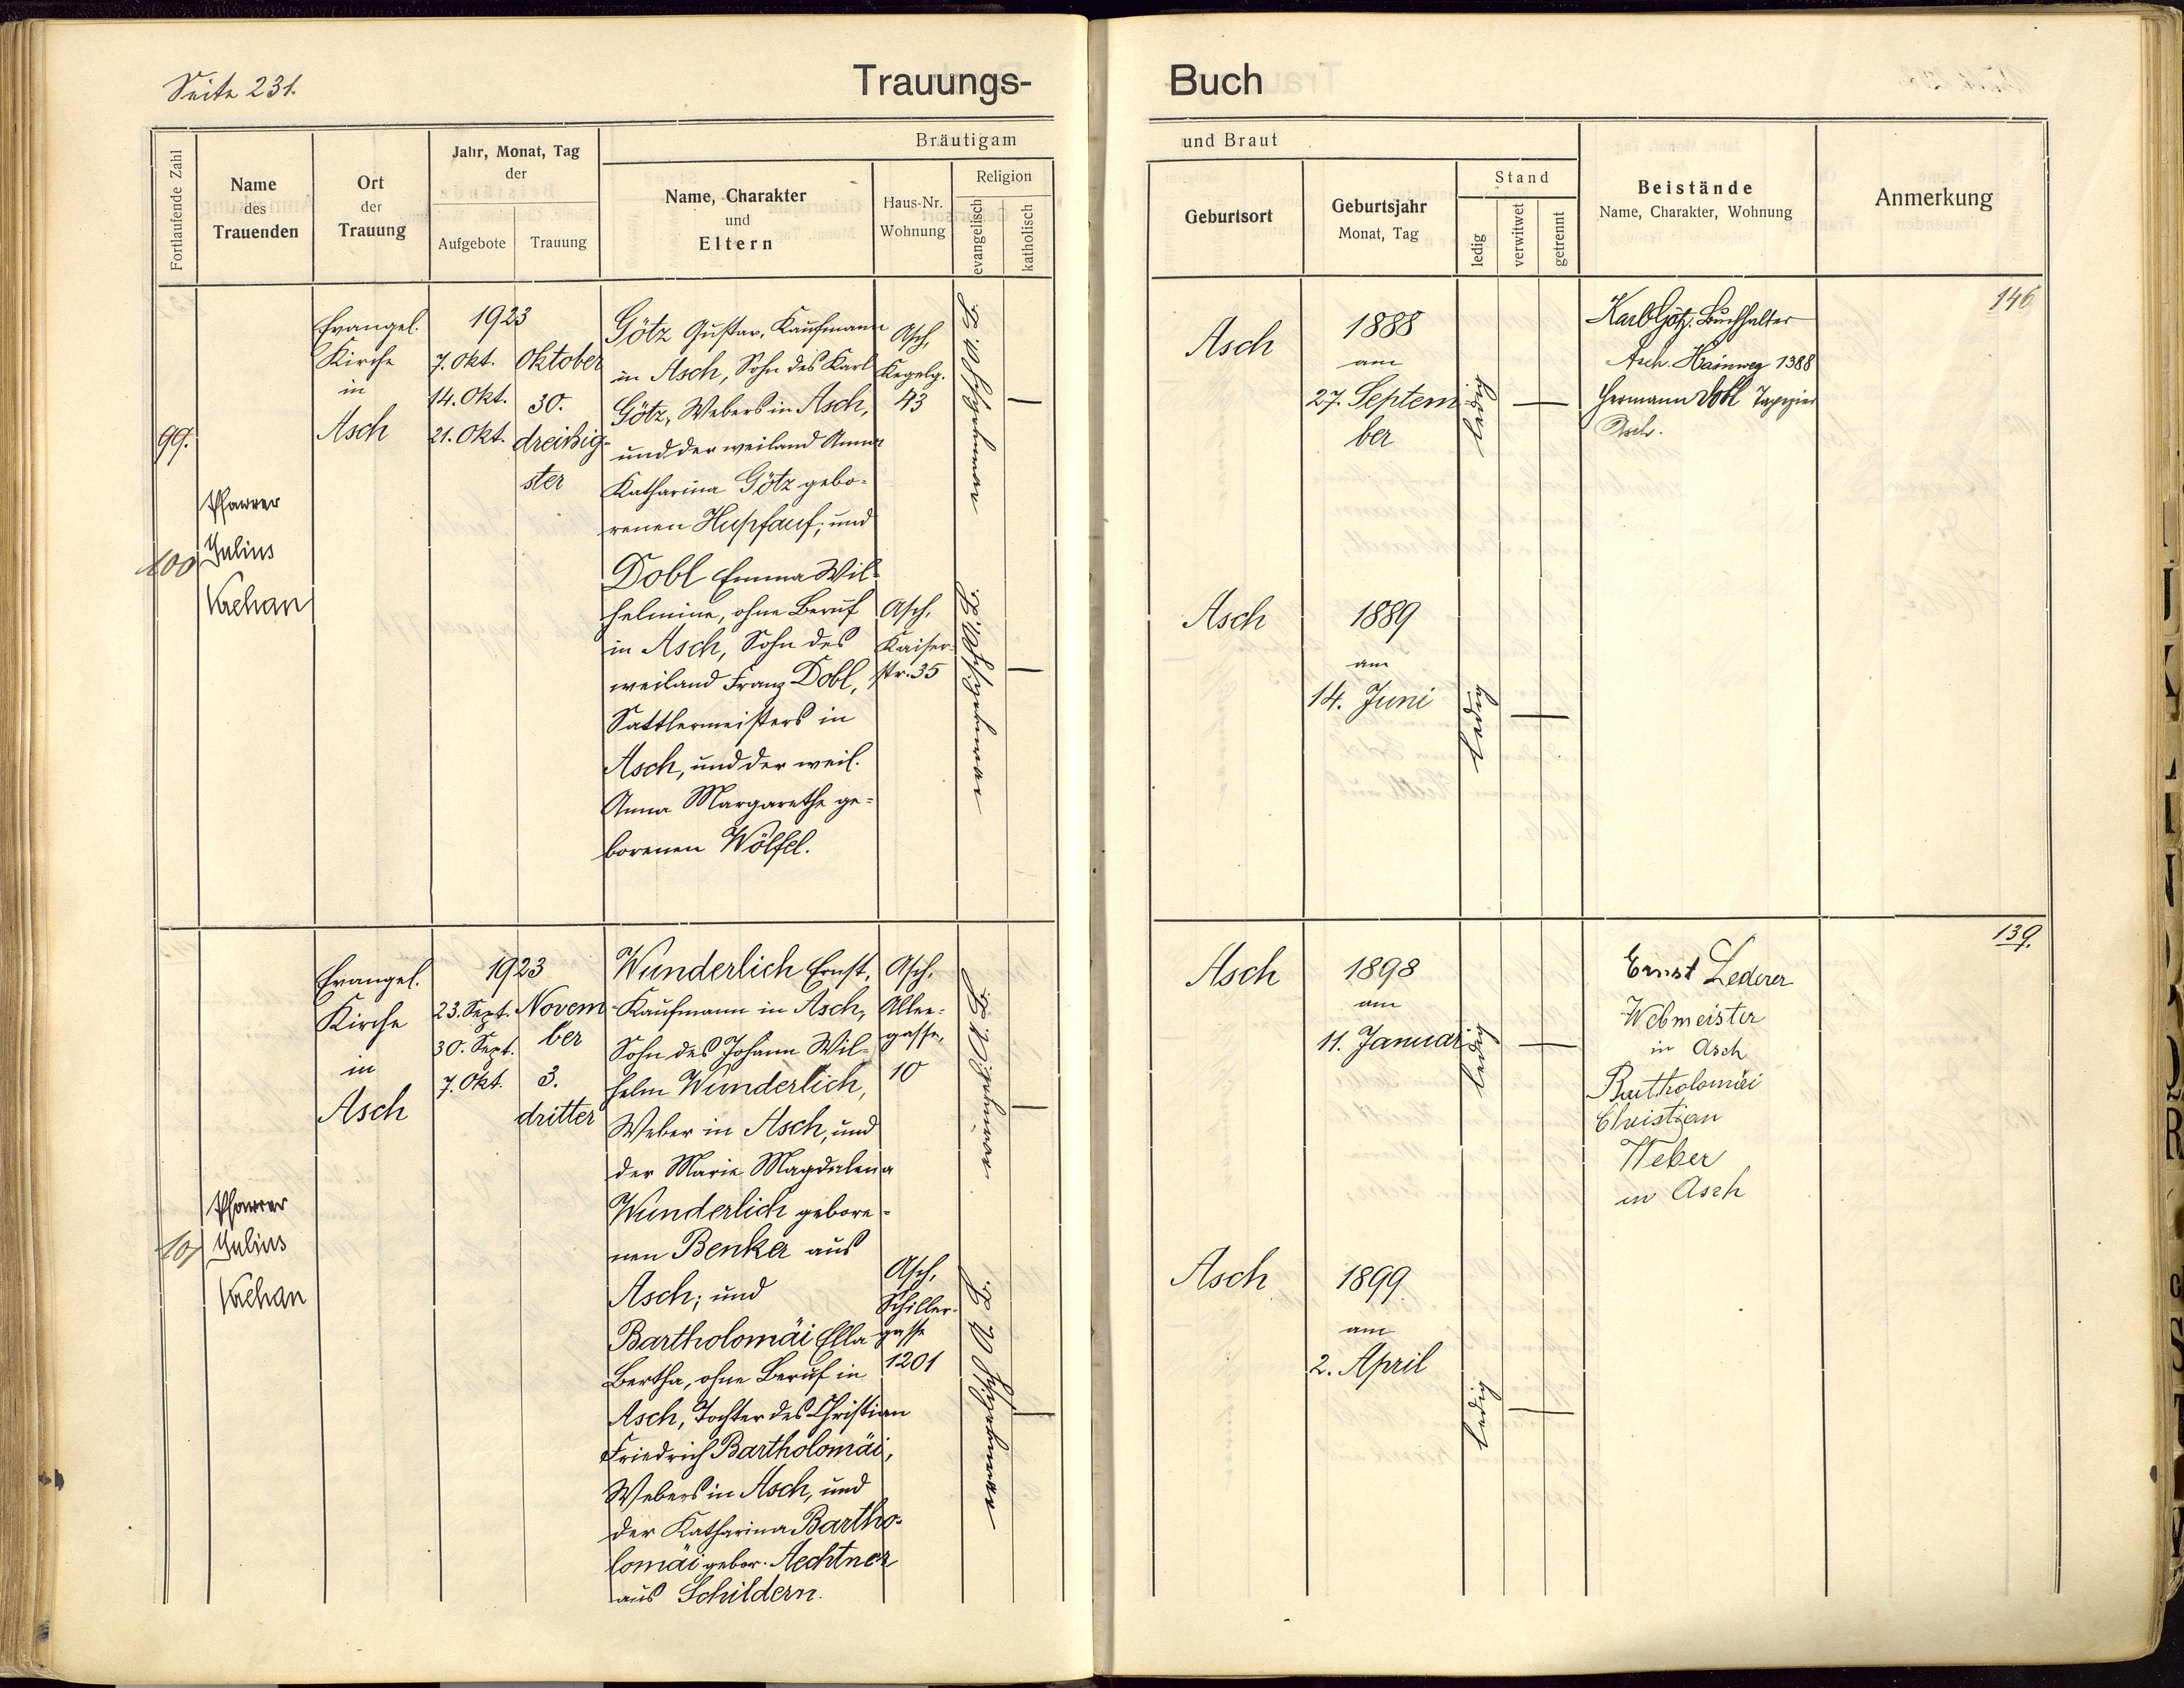 Seite 231.
Trauungs-
Buch
Fortlaufende Zahl
Name
des
Trauenden
Ort
der
Trauung
Jahr, Monat, Tag
der
Aufgebote
Trauung
Bräutigam
Name, Charakter
und
Eltern
Haus-Nr.
Wohnung
Religion
evangelisch
katholisch
und Braut
Geburtsort
Geburtsjahr
Monat, Tag
Stand
ledig
verwitwet
getrennt
Beistände
Name, Charakter, Wohnung
Anmerkung
99.
100
Pfarrer
Julius
Krehan
Evangel.
Kirche
in
Asch
1923
7. Okt.
14. Okt.
21. Okt.
Oktober
30.
dreißig-
ster
Götz Gustav, Kaufmann
in Asch, Sohn des Karl
Götz, Webers in Asch,
und der weiland Anna
Katharina Götz gebo-
renen Hupfauf; und
Dobl Emma Wil-
helmine, ohne Beruf
in Asch, Sohn des
weiland Franz Dobl,
Sattlermeisters in
Asch, und der weil.
Anna Margarethe ge-
borenen Wölfel.
Asch,
Kegelg.
43
Asch,
Kaiser-
str. 35
evangelisch A. B.
evangelisch A. B.
Asch
1888
am
27. Septem
ber
ledig
Asch
1889
am
14. Juni
ledig
Karl Götz, Buchhalter
Asch Hainweg 1388
Hermann Dobl Tapezier
Asch.
146
101
Pfarrer
Julius
Krehan
Evangel.
Kirche
in
Asch
1923
23. Sept.
30. Sept.
7. Okt.
Novem
ber
3.
dritter
Wunderlich Ernst,
Kaufmann in Asch,
Sohn des Johann Wil-
helm Wunderlich,
Weber in Asch, und
der Marie Magdalena
Wunderlich gebore-
nen Benker aus
Asch; und
Bartholomäi Ella
Bertha, ohne Beruf in
Asch, Tochter des Christian
Friedrich Bartholomäi,
Webers in Asch, und
der Katharina Bartho-
lomäi gebor. Aechtner
aus Schildern.
Asch,
Allee-
gasse,
10
Asch,
Schiller-
gasse
1201
evangel. A. B.
evangelisch A. B.
Asch
1898
am
11. Januar
ledig
Asch
1899
am
2. April
ledig
Ernst Lederer
Webmeister
in Asch
Bartholomäi
Christian
Weber
in Asch
139.